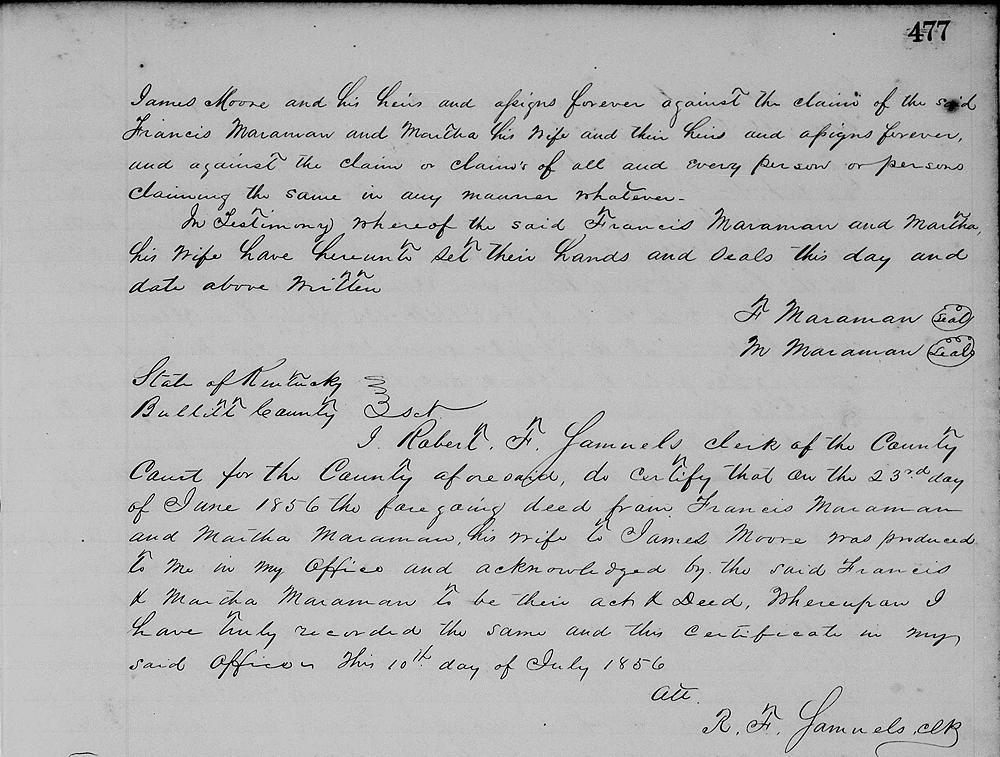 477
James Moore and his heirs and assigns forever against the claim of the said
Francis Maraman and Martha his Wife and their heirs and assigns forever,
and against the claim or claim's of all and every person or persons
claiming the same in any manner whatever-
In Testimony whereof the said Francis Maraman and Martha,
his Wife have hereunto set their hands and seals this day and
date above written
F Maraman Seal
M Maraman Seal
State of Kentucky
Bullitt County sct
I. Robert. F. Samuels clerk of the County
Court for the County aforesaid, do certify that on the 23rd day
of June 1856 the foregoing deed from Francis Maraman
and Martha Maraman, his wife to James Moore was produced
to me in my Office and acknowledged by the said Francis
& Martha Maraman to be their act & Deed, Whereupon I
have truly recorded the same and this certificate in my
said Office- This 10th day of July 1856
Att.
R. F. Samuels, clk